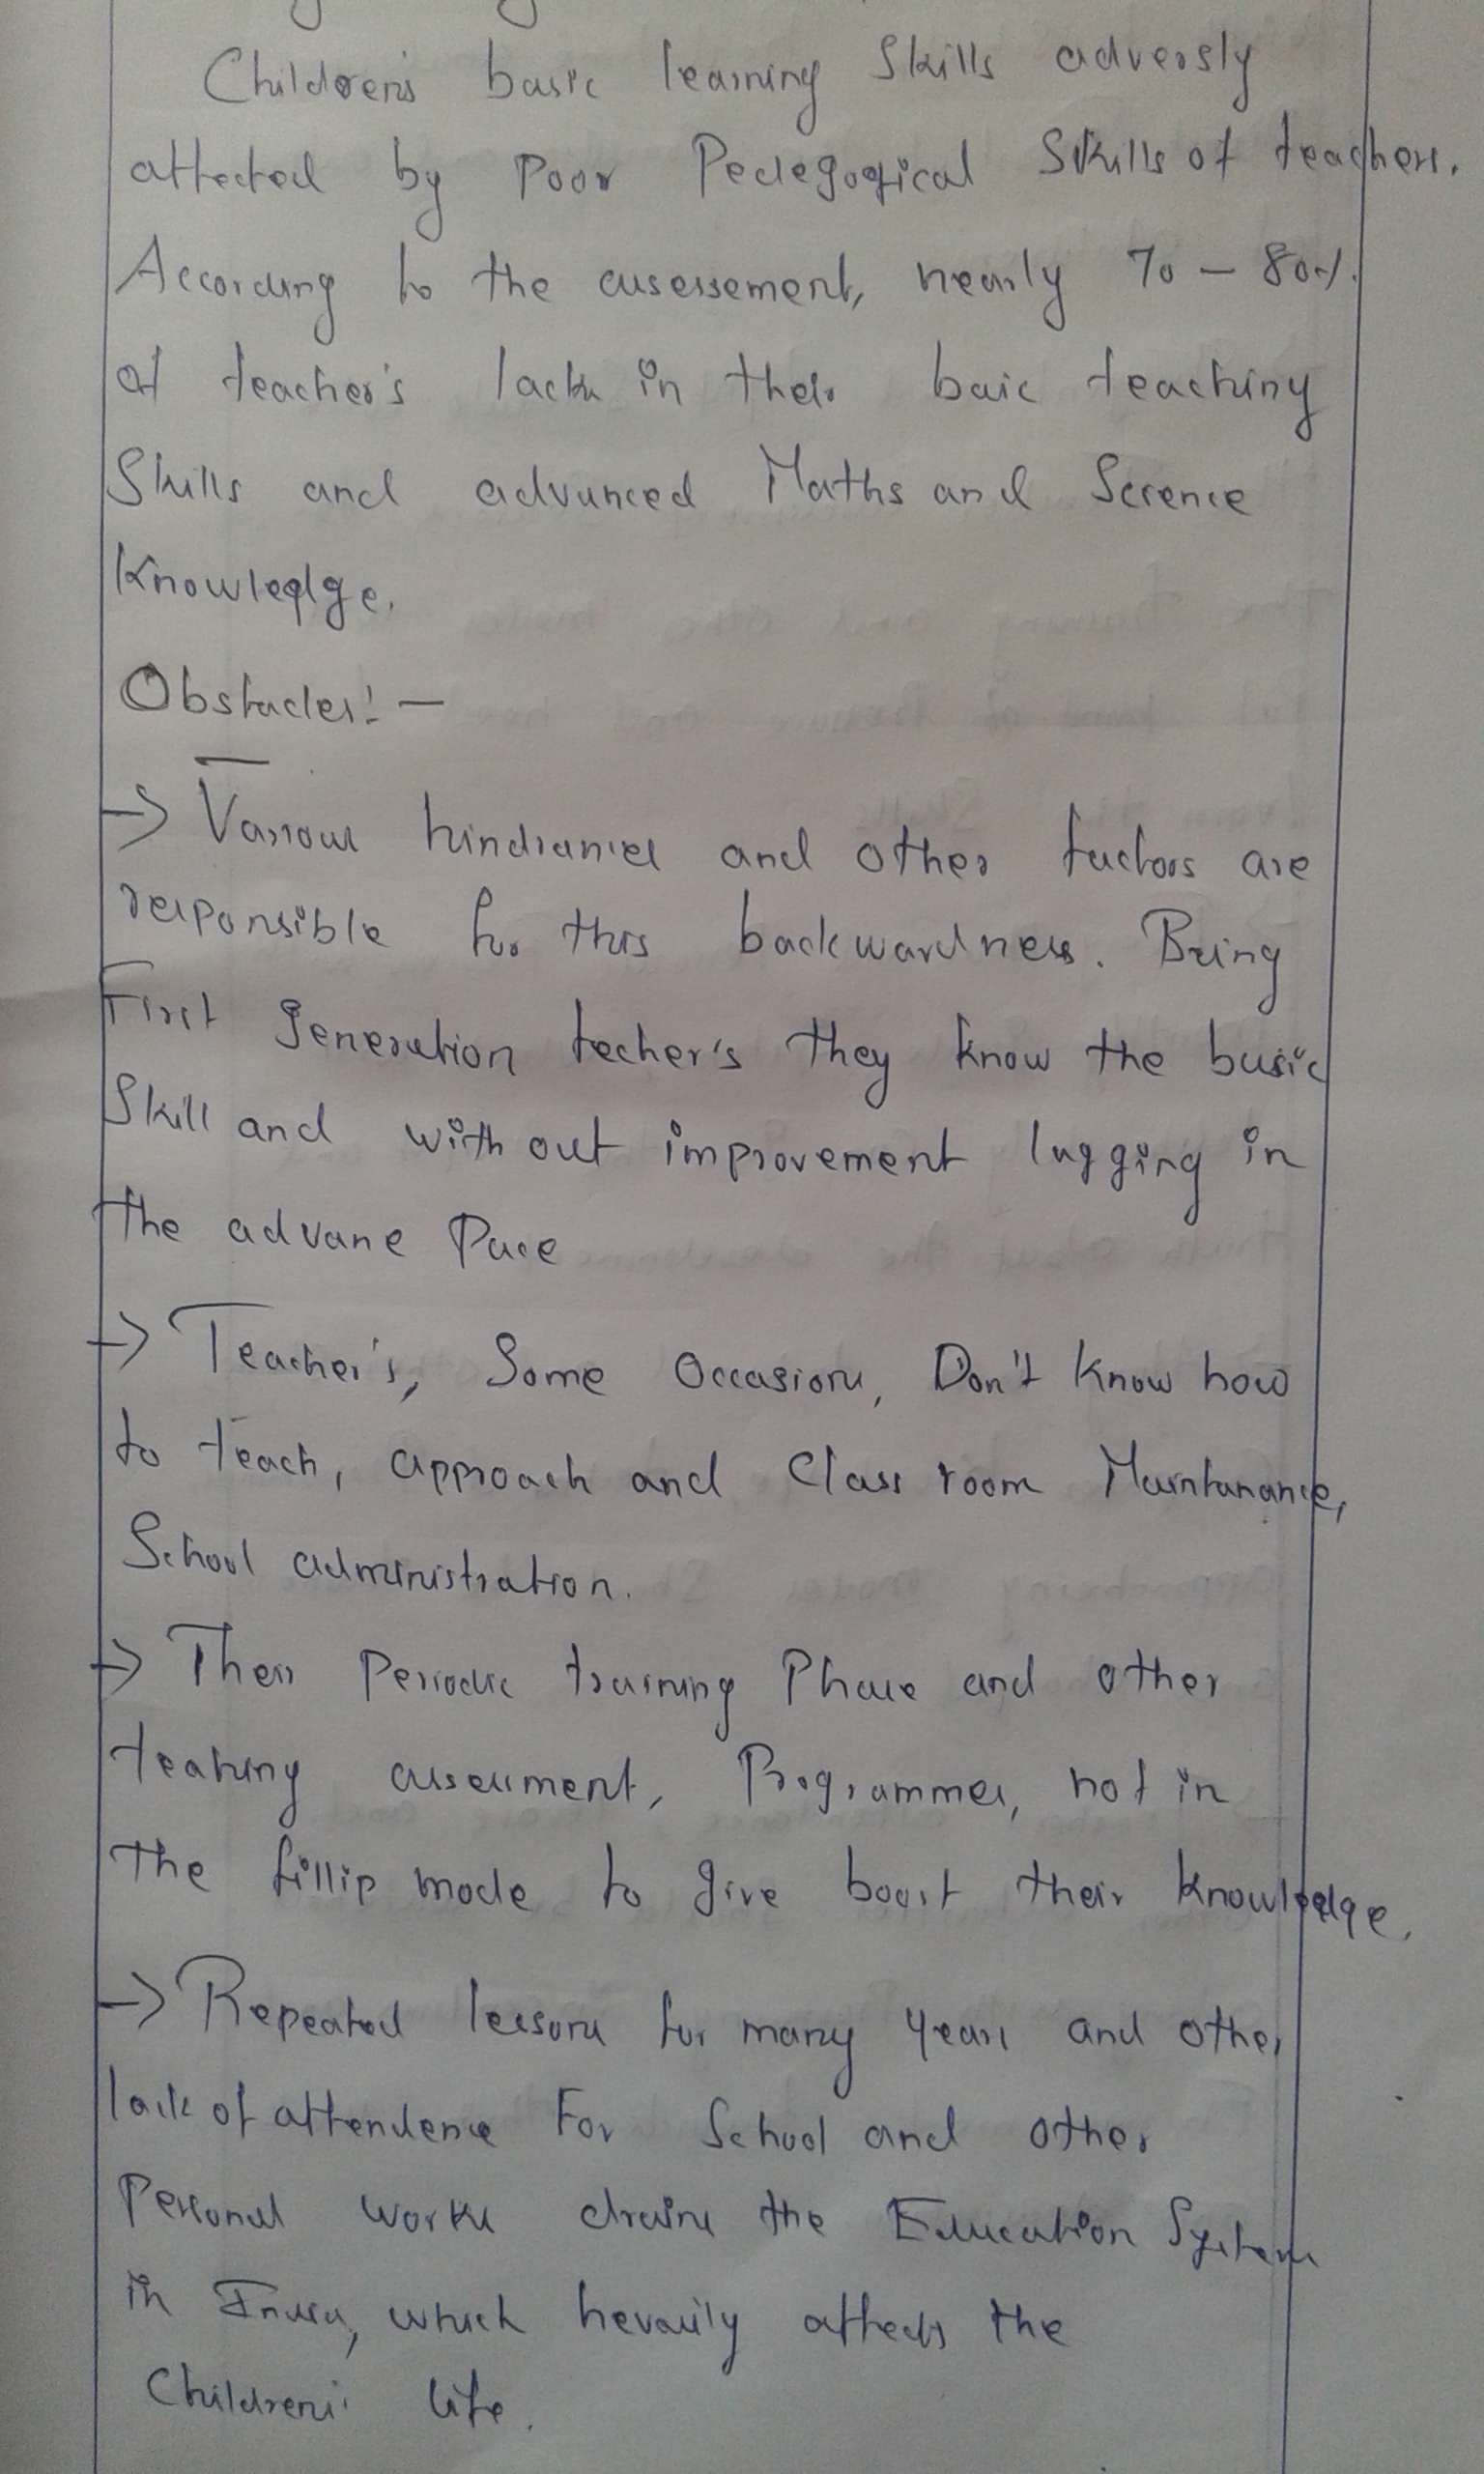 Children's basic learning Skills adversly
affected by Poor Pedegogical Skills of teachers.
According to the assessement, nearly 70 - 80%
of teacher's lack in their baic teaching
Skills and advanced Maths and Science
Knowledge.
Obstacles:-
-> Various hindrances and other factors are
responsible for this backwardness. Being
First generation techer's they know the basic
Skill and without improvement lagging in
the advance Pace
-> Teacher's, Some Occasions, Don't know how
to teach, approach and Class room Maintanance,
School administration.
-> Their Periodic training Phase and other
teahing assessment, Programmes, not in
the fillip mode to give boost their knowledge.
-> Repeated lessons for many years and other
lack of attendence For School and other
Personal works drains the Education System
in India, which hevaily affects the
Childrens' life.